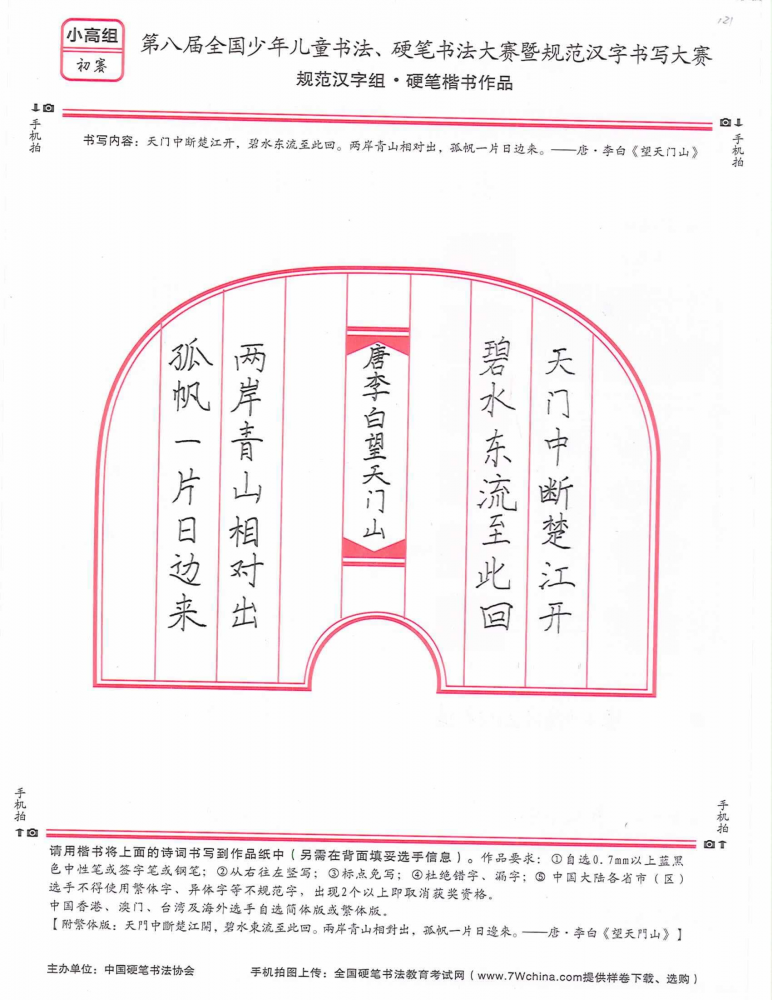 121
小高组
初赛
第八届全国少年儿童书法、硬笔书法大赛暨规范汉字书写大赛
规范汉字组·硬笔楷书作品
手机拍
手机拍
书写内容：天门中断楚江开，碧水东流至此回。两岸青山相对出，孤帆一片日边来。——唐·李白《望天门山》
天门中断楚江开
碧水东流至此回
唐李白望天门山
两岸青山相对出
孤帆一片日边来
手机拍
手机拍
请用楷书将上面的诗词书写到作品纸中（另需在背面填妥选手信息）。作品要求：①自选0.7mm以上蓝黑
色中性笔或签字笔或钢笔；②从右往左竖写；③标点免写；④杜绝错字、漏字；⑤中国大陆各省市（区）
选手不得使用繁体字、异体字等不规范字，出现2个以上即取消获奖资格。
中国香港、澳门、台湾及海外选手自选简体版或繁体版。
【附繁体版：天門中斷楚江開，碧水東流至此回。兩岸青山相對出，孤帆一片日邊來。——唐·李白《望天門山》】
主办单位：中国硬笔书法协会
手机拍图上传：全国硬笔书法教育考试网（www.7Wchina.com提供样卷下载、选购）